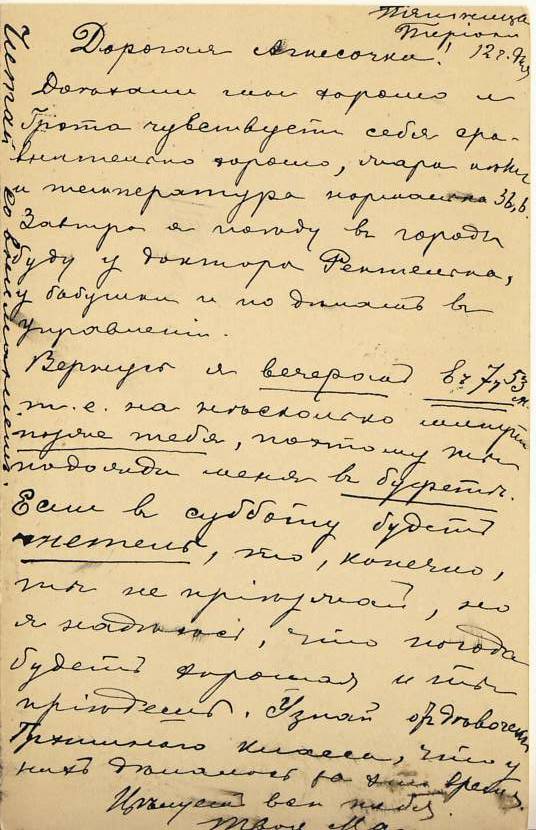 Пятница
Терiоки
12 ч. дня
Дорогая Агнесочка!
Доехали мы хорошо и
Грета чувствуетъ себя сра-
внительно хорошо,
и температура нормальна 36,6.
Завтра я поѣду въ городъ
буду у доктора
у бабушки и по дѣламъ въ
управленiи.
Вернусь я вечеромъ въ 7 ч 53 м.
т. е. на нѣсколько минутъ
позже тебя, поэтому ты
подожди меня въ буфетѣ.
Если въ субботу будетъ
метель, то, конечно,
ты не прiѣзжай, но
я надѣюсь, что погода
будетъ хорошая и ты
прiѣдешь. Узнай
класса, что у
нихъ дѣлалось за это время.
Цѣлуемъ всѣ тебя.
Твоя Ма
Читай со вниманiемъ.